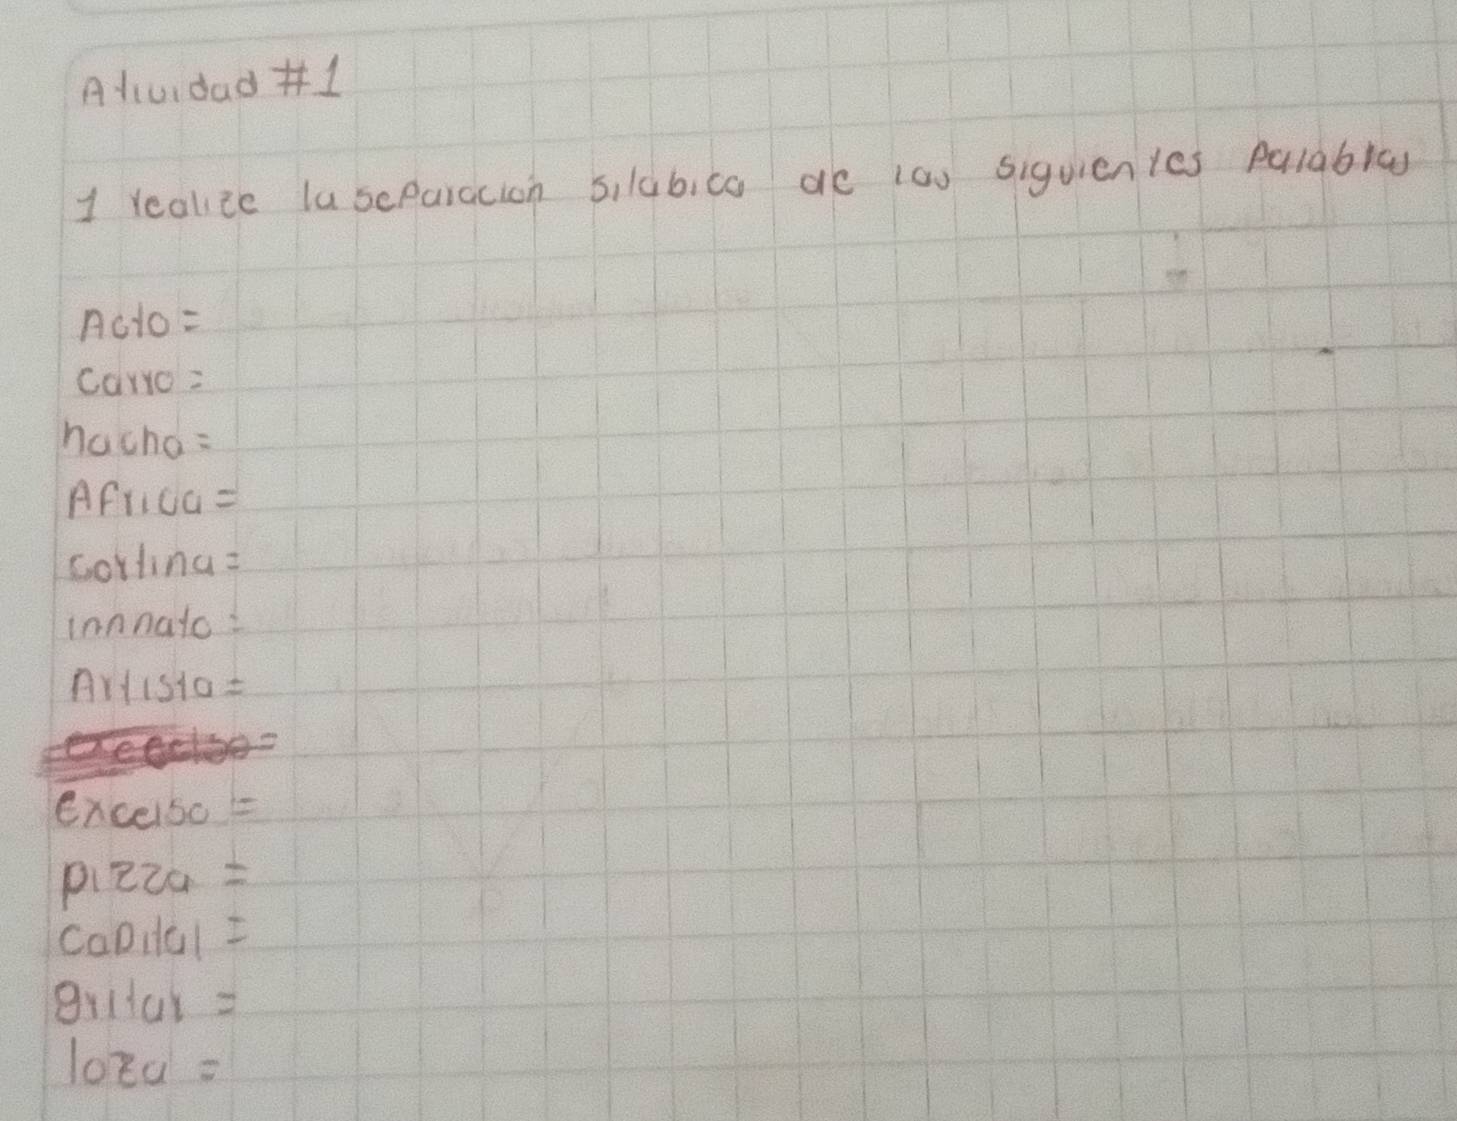 Atividad #1
1 realize la separacion silabica de las siguientes Palabras
Acto=
carro=
hacha=
Africa=
cortina=
innnato=
Artista=
excelso=
pizza=
capital=
gritar=
loza=